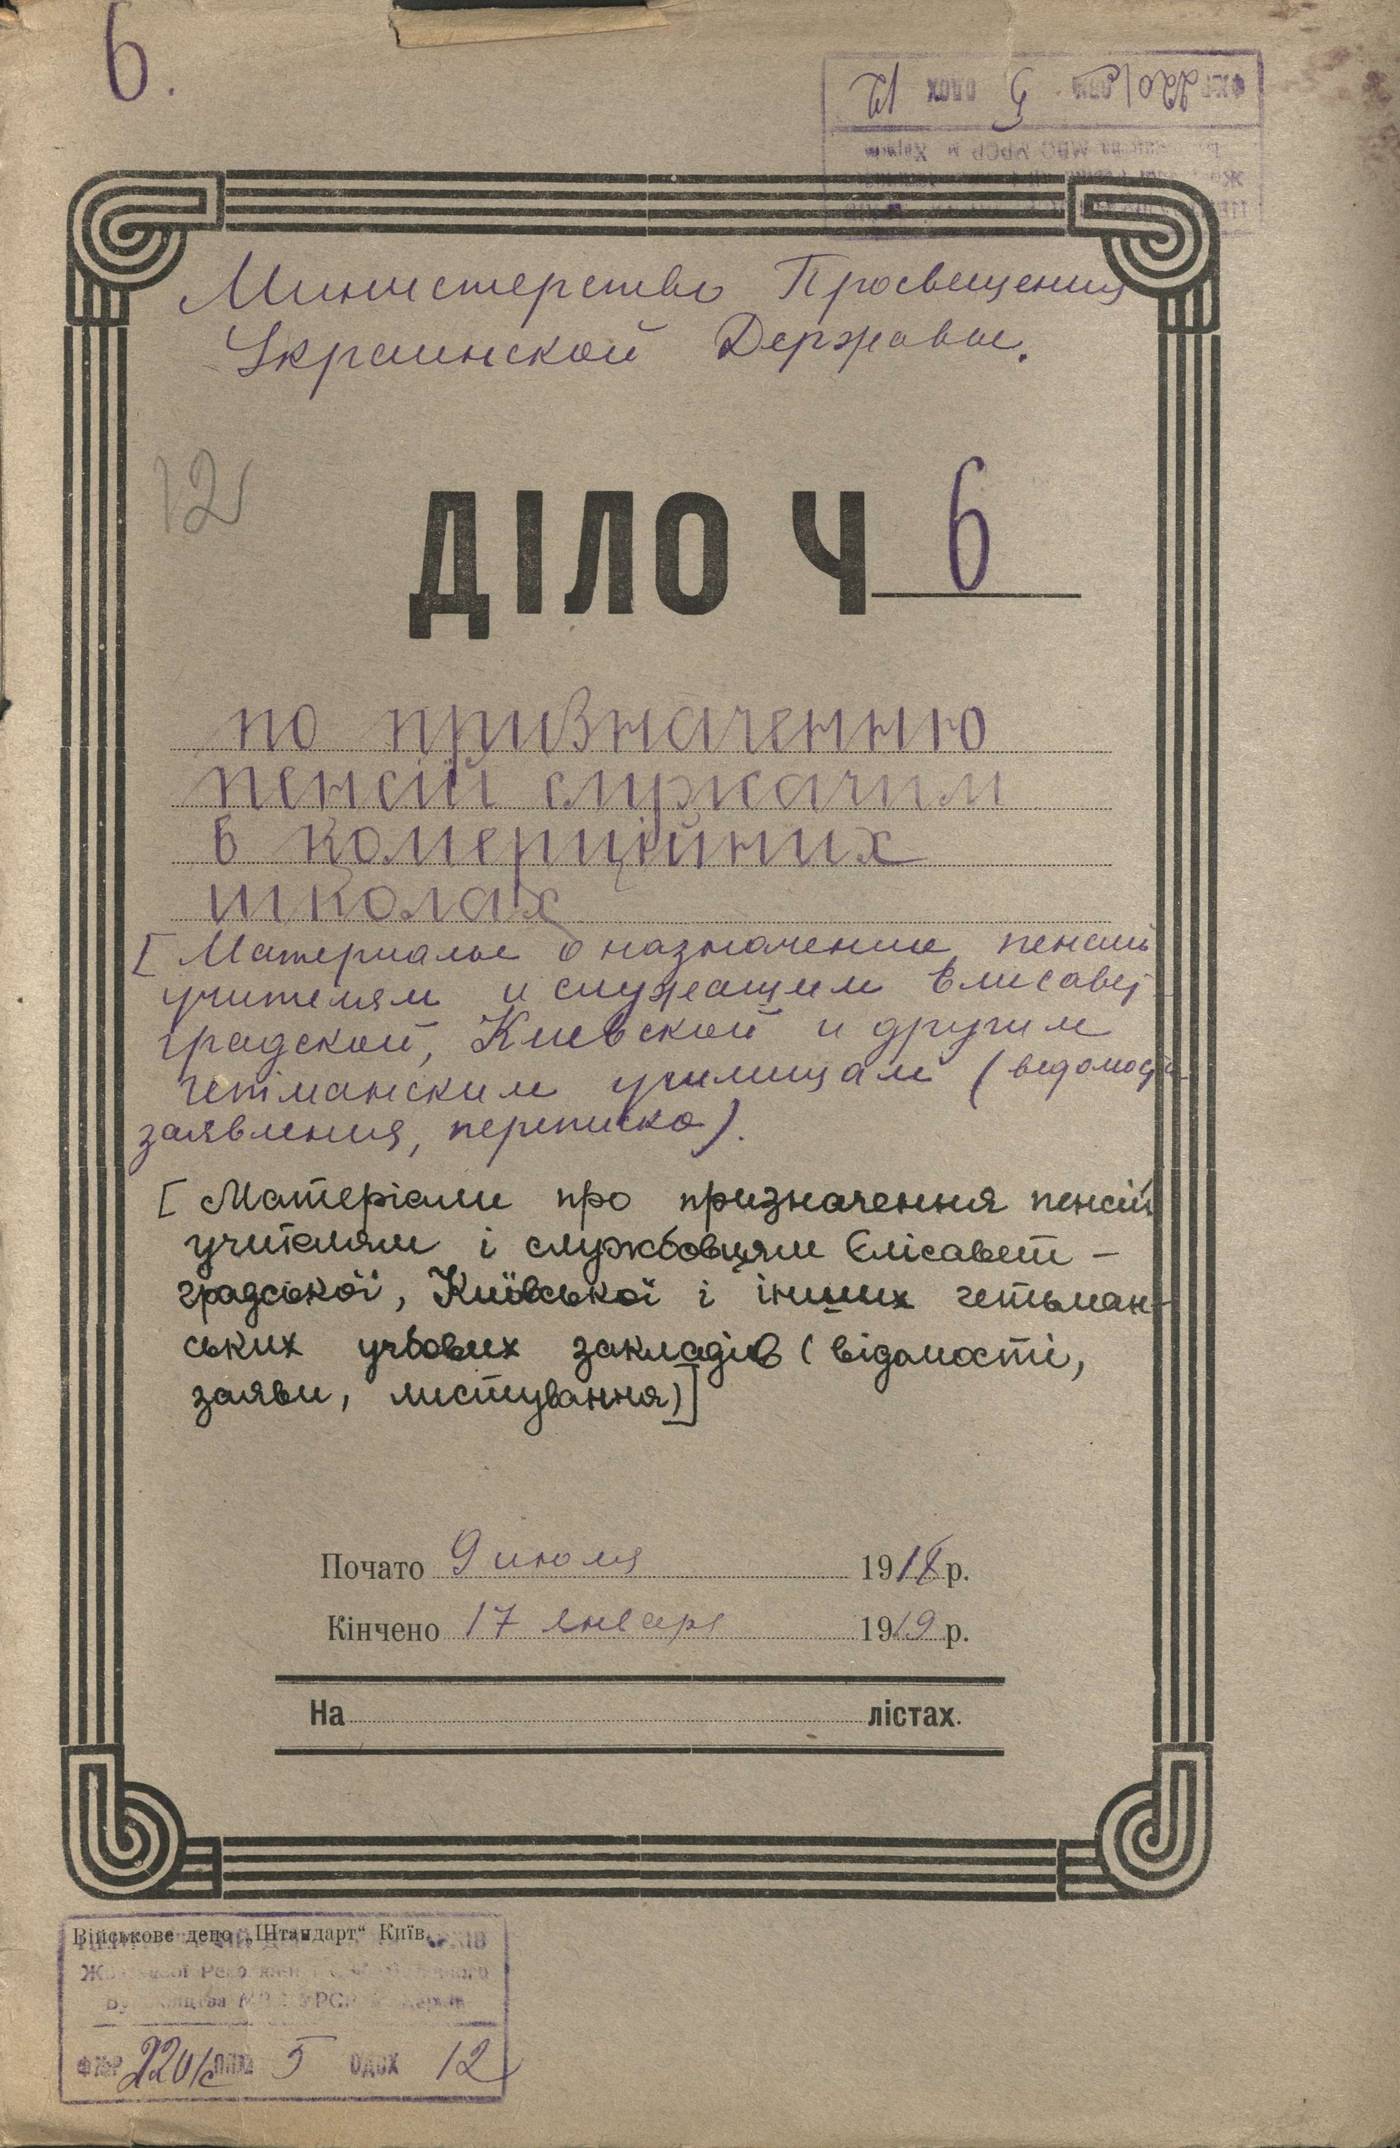 6.
Министерство Просвещения
Украинской Державы.
12
ДІЛО Ч 6
по призначенню
пенсій служачим
в комерційних
школах
[Материалы о назначении пенсий
учителям и служащим Елисавет-
градской, Киевской и другим
гетманским училищам (ведомости
заявления, переписка).
[Матеріали про призначення пенсій
учителям і службовцям Єлісавет-
градської, Київської і інших гетьман-
ських учбових закладів (відомості,
заяви, листування)]
Почато 9 июля 1918 р.
Кінчено 17 января 1919 р.
На лістах.
Військове депо „Штандарт“ Київ.
Жовтневої Революції
УРСР
220/с 5 12